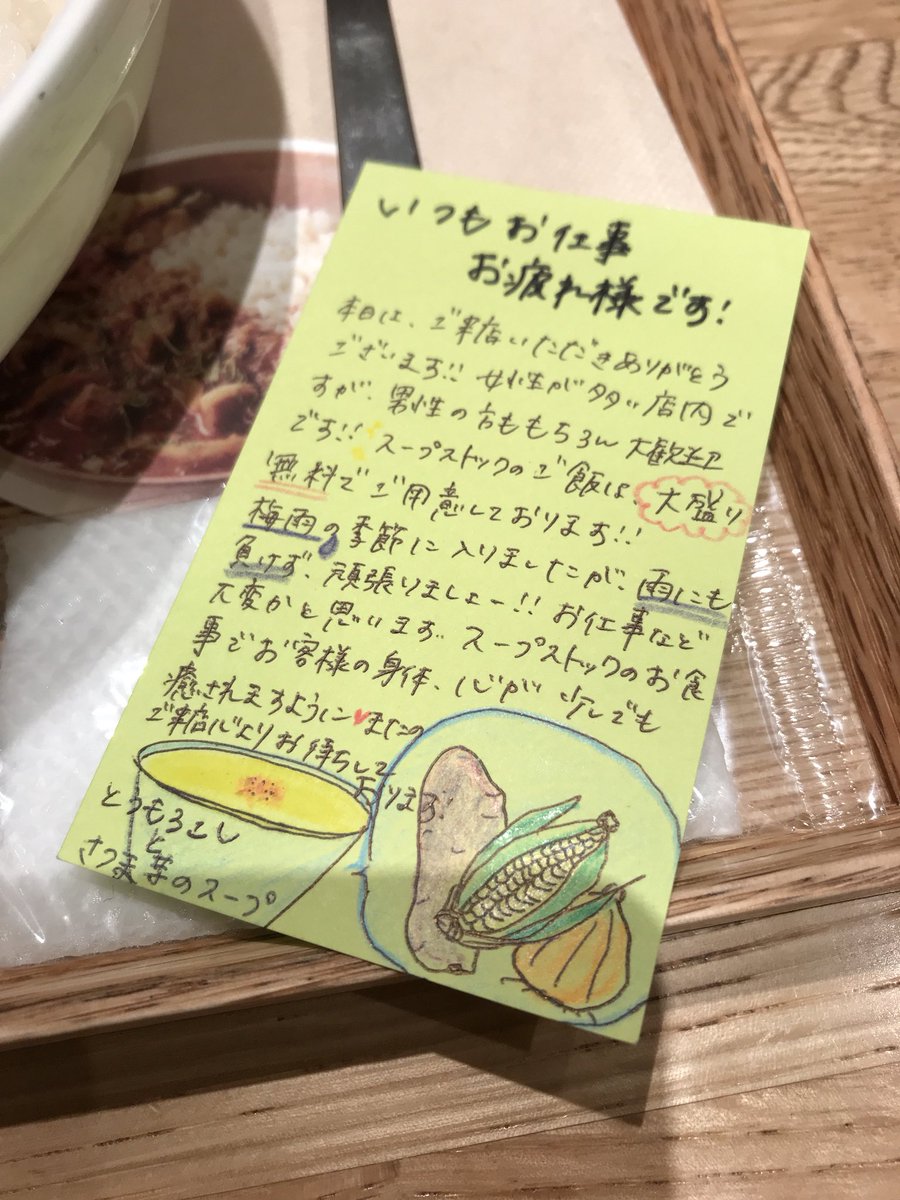 いつもお仕事
お疲れ様です!
本日は、ご来店いただきありがとう
ございます!! 女性が多い店内で
すが、男性の方ももちろん大歓迎
です!! スープストックのご飯は、大盛り
無料でご用意しております!!
梅雨の季節に入りましたが、雨にも
負けず、頑張りましょー!! お仕事など
大変かと思います。スープストックのお食
事でお客様の身体、心が少しでも
癒されますように♥またの
ご来店心よりお待ちして
おります
とうもろこし
と
さつま芋のスープ